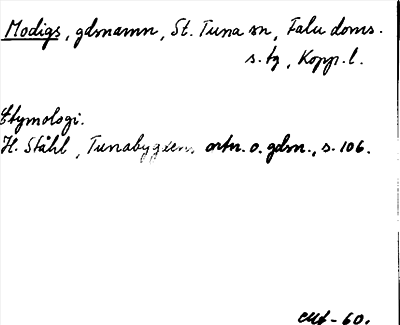 Modigs, gdsnamn, St. Tuna sn, Falu doms.
s. tg, Kopp. l.
Etymologi.
H. Ståhl, Tunabygdens ortn. o. gdsn., s. 106.
-60.